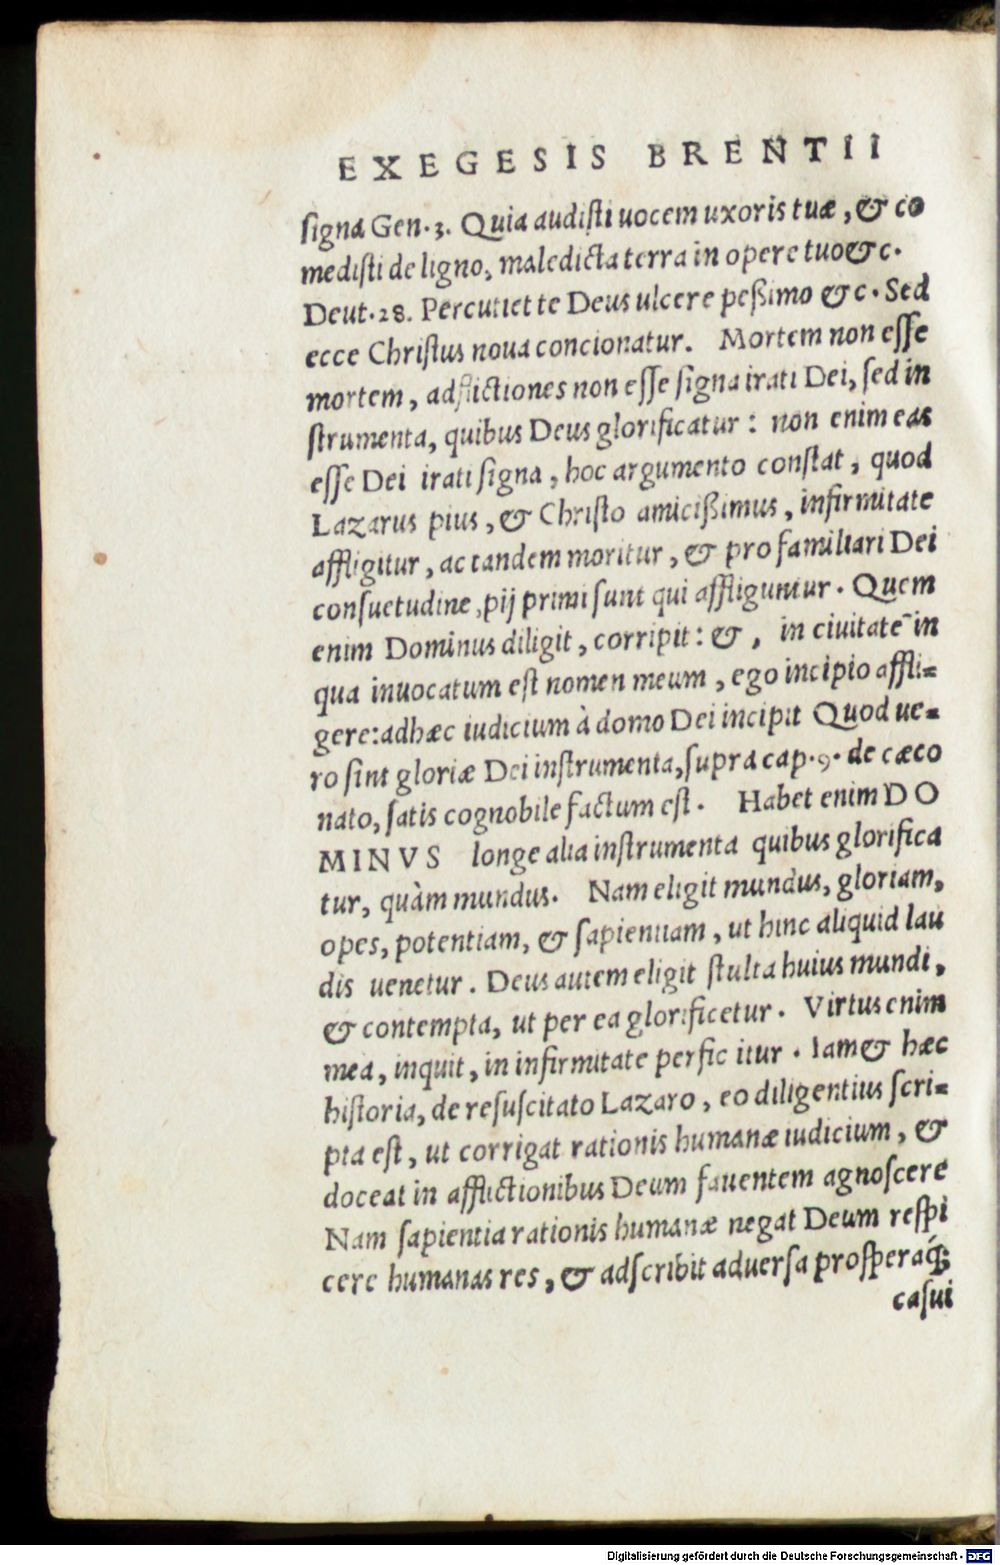 EXEGESIS BRENTII
ſigna Gen. 3. Quia audiſti uocem uxoris tuæ, & co
mediſti de ligno, maledicta terra in opere tuo &c.
Deut. 28. Percutiet te Deus ulcere peßimo &c. Sed
ecce Chriſtus noua concionatur. Mortem non eſſe
mortem, adflictiones non eſſe ſigna irati Dei, ſed in
ſtrumenta, quibus Deus glorificatur: non enim eas
eſſe Dei irati ſigna, hoc argumento conſtat, quod
Lazarus pius, & Chriſto amicißimus, infirmitate
affligitur, ac tandem moritur, & pro familiari Dei
conſuetudine, pij primi ſunt qui affliguntur. Quem
enim Dominus diligit, corripit: &, in ciuitate in
qua inuocatum eſt nomen meum, ego incipio affli=
gere: adhæc iudicium à domo Dei incipit Quod ue=
ro ſint gloriæ Dei inſtrumenta, ſupra cap. 9. de cæco
nato, ſatis cognobile factum eſt. Habet enim DO
MINVS longe alia inſtrumenta quibus glorifica
tur, quàm mundus. Nam eligit mundus, gloriam,
opes, potentiam, & ſapientiam, ut hinc aliquid lau
dis uenetur. Deus autem eligit ſtulta huius mundi,
& contempta, ut per ea glorificetur. Virtus enim
mea, inquit, in infirmitate perfic itur. Iam & hæc
hiſtoria, de reſuſcitato Lazaro, eo diligentius ſcri=
pta eſt, ut corrigat rationis humanæ iudicium, &
doceat in afflictionibus Deum fauentem agnoſcere
Nam ſapientia rationis humanæ negat Deum reſpi
cere humanas res, & adſcribit aduerſa proſperaq́;
caſui
Digitalisierung gefördert durch die Deutsche Forschungsgemeinschaft - DFG